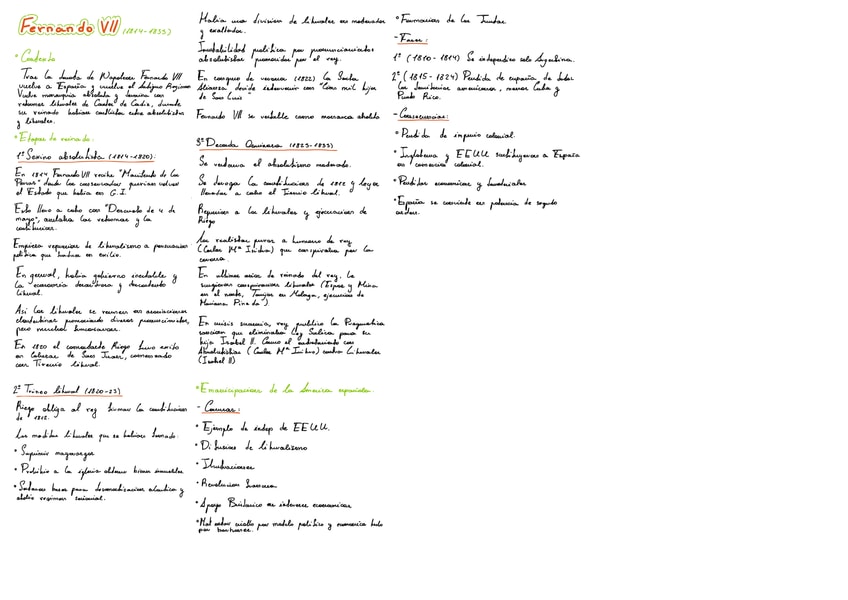 Fernando VII (1814-1833)
• Contexto
Tras la derrota de Napoleon Fernando VII
vuelve a España y vuelve el Antiguo Regimen
Vuelve monarquia absoluta y termina con
reformas liberales de Cortes de Cadiz, durante
su reinado habian conflictos entre absolutistas
y liberales.
• Etapas de reinado.
1º Sexino absolutista (1814-1820):
En 1814 Fernando VII recibe "Manifiesto de los
Persas" donde los conservadores querian volver
el Estado que habia en G.I.
Esto llevo a cabo con "Decreto de 4 de
mayo", anulaba las reformas y la
constitucion.
Empieza represion de liberalismo a persecucion
politica que huida en exilio.
En general, habia gobierno inestable y
la economia desastrosa y descontento
liberal.
Asi los liberales se reunen en asociaciones
clandestinas promoviendo diversos pronunciamientos,
pero muchos fracasaron.
En 1820 el comandante Riego tuvo exito
en Cabezas de San Juan, comenzando
con Trienio liberal.
2º Trineo liberal (1820-23)
Riego obliga al rey firmar la constitucion
de 1812.
Las medidas liberales que se habian tomado:
• Suprimir mayorazgos
• Prohibir a la iglesia obtener bienes inmuebles
• Sentaron bases para desamortizacion eclesiastica y
abolir regimen señorial.
Habia una division de liberales en moderados
y exaltados.
Inestabilidad politica por pronunciamientos
absolutistas promovidos por el rey.
En congreso de verona (1822) la Santa
Alianza decide intervenir con "Cien mil hijos
de San Luis"
Fernando VII se restable como monarca absoluto
3º Decada Ominosa (1823-1833)
Se restaura el absolutismo moderado.
Se deroga la constitucion de 1812 y leyes
llevadas a cabo el Trienio liberal.
Represion a los liberales y ejecucion de
Riego
Los realistas puros a hermano de rey
(Carlos Mª Isidro) que conspiraba por la
corona.
En ultimos años de reinado del rey, le
surgieron conspiraciones liberales (Espoz y Mina
en el norte, Torrijos en Malaga, ejecucion de
Mariana Pineda)
En crisis sucesoria, rey publico la Pragmatica
sancion que eliminaba Ley Salica para su
hija Isabel II. Causo el enfrentamiento con
Absolutistas (Carlos Mª Isidro) contra Liberales
(Isabel II)
• Emancipacion de la America española.
- Causas:
• Ejemplo de indep de EEUU.
• Difusion de liberalismo
• Ilustraciones
• Revolucion francesa
• Apoyo Britanico en intereses economicos
por borbones.
• Formacion de las Juntas
- Fases:
1º (1810-1814) Se independiza solo Argentina.
2º (1815-1824) Perdida de españa de todos
los territorios americanos, menos Cuba y
Puerto Rico.
- Consecuencias:
• Perdida de imperio colonial.
• Inglaterra y EEUU sustituyeron a España
en comercio colonial.
• Perdidas economicas y territoriales
• España se convierte en potencia de segundo
orden.